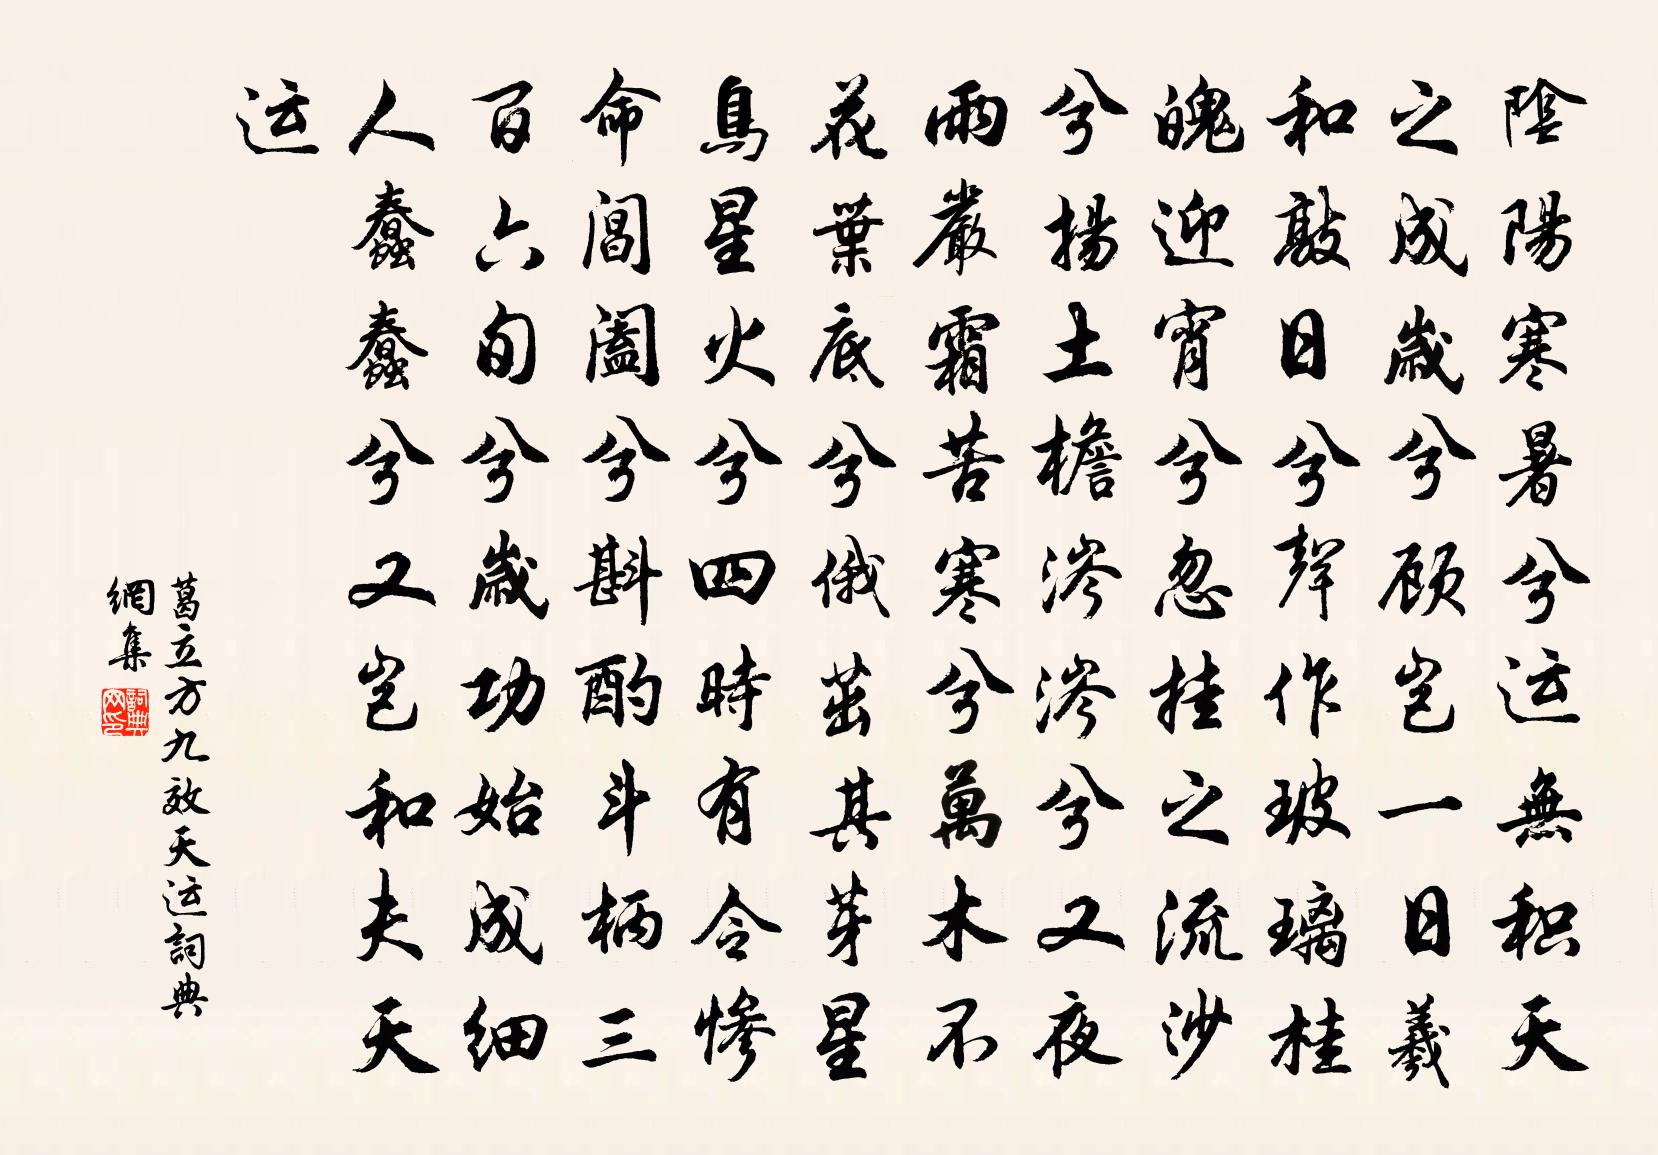 陰陽寒暑兮运無积天
之成歲兮顾岂一日羲
和敲日兮聲作玻璃桂
魄迎宵兮忽挂之流沙
兮揚土檐涔涔兮又夜
雨嚴霜苦寒兮萬木不
花葉底兮俄茁其芽星
鳥星火兮四時有令慘
命閶闔兮斟酌斗柄三
百六旬兮歲功始成细
人蠢蠢兮又岂和夫天
运
葛立方九效天运詞典
網集
詞典网印